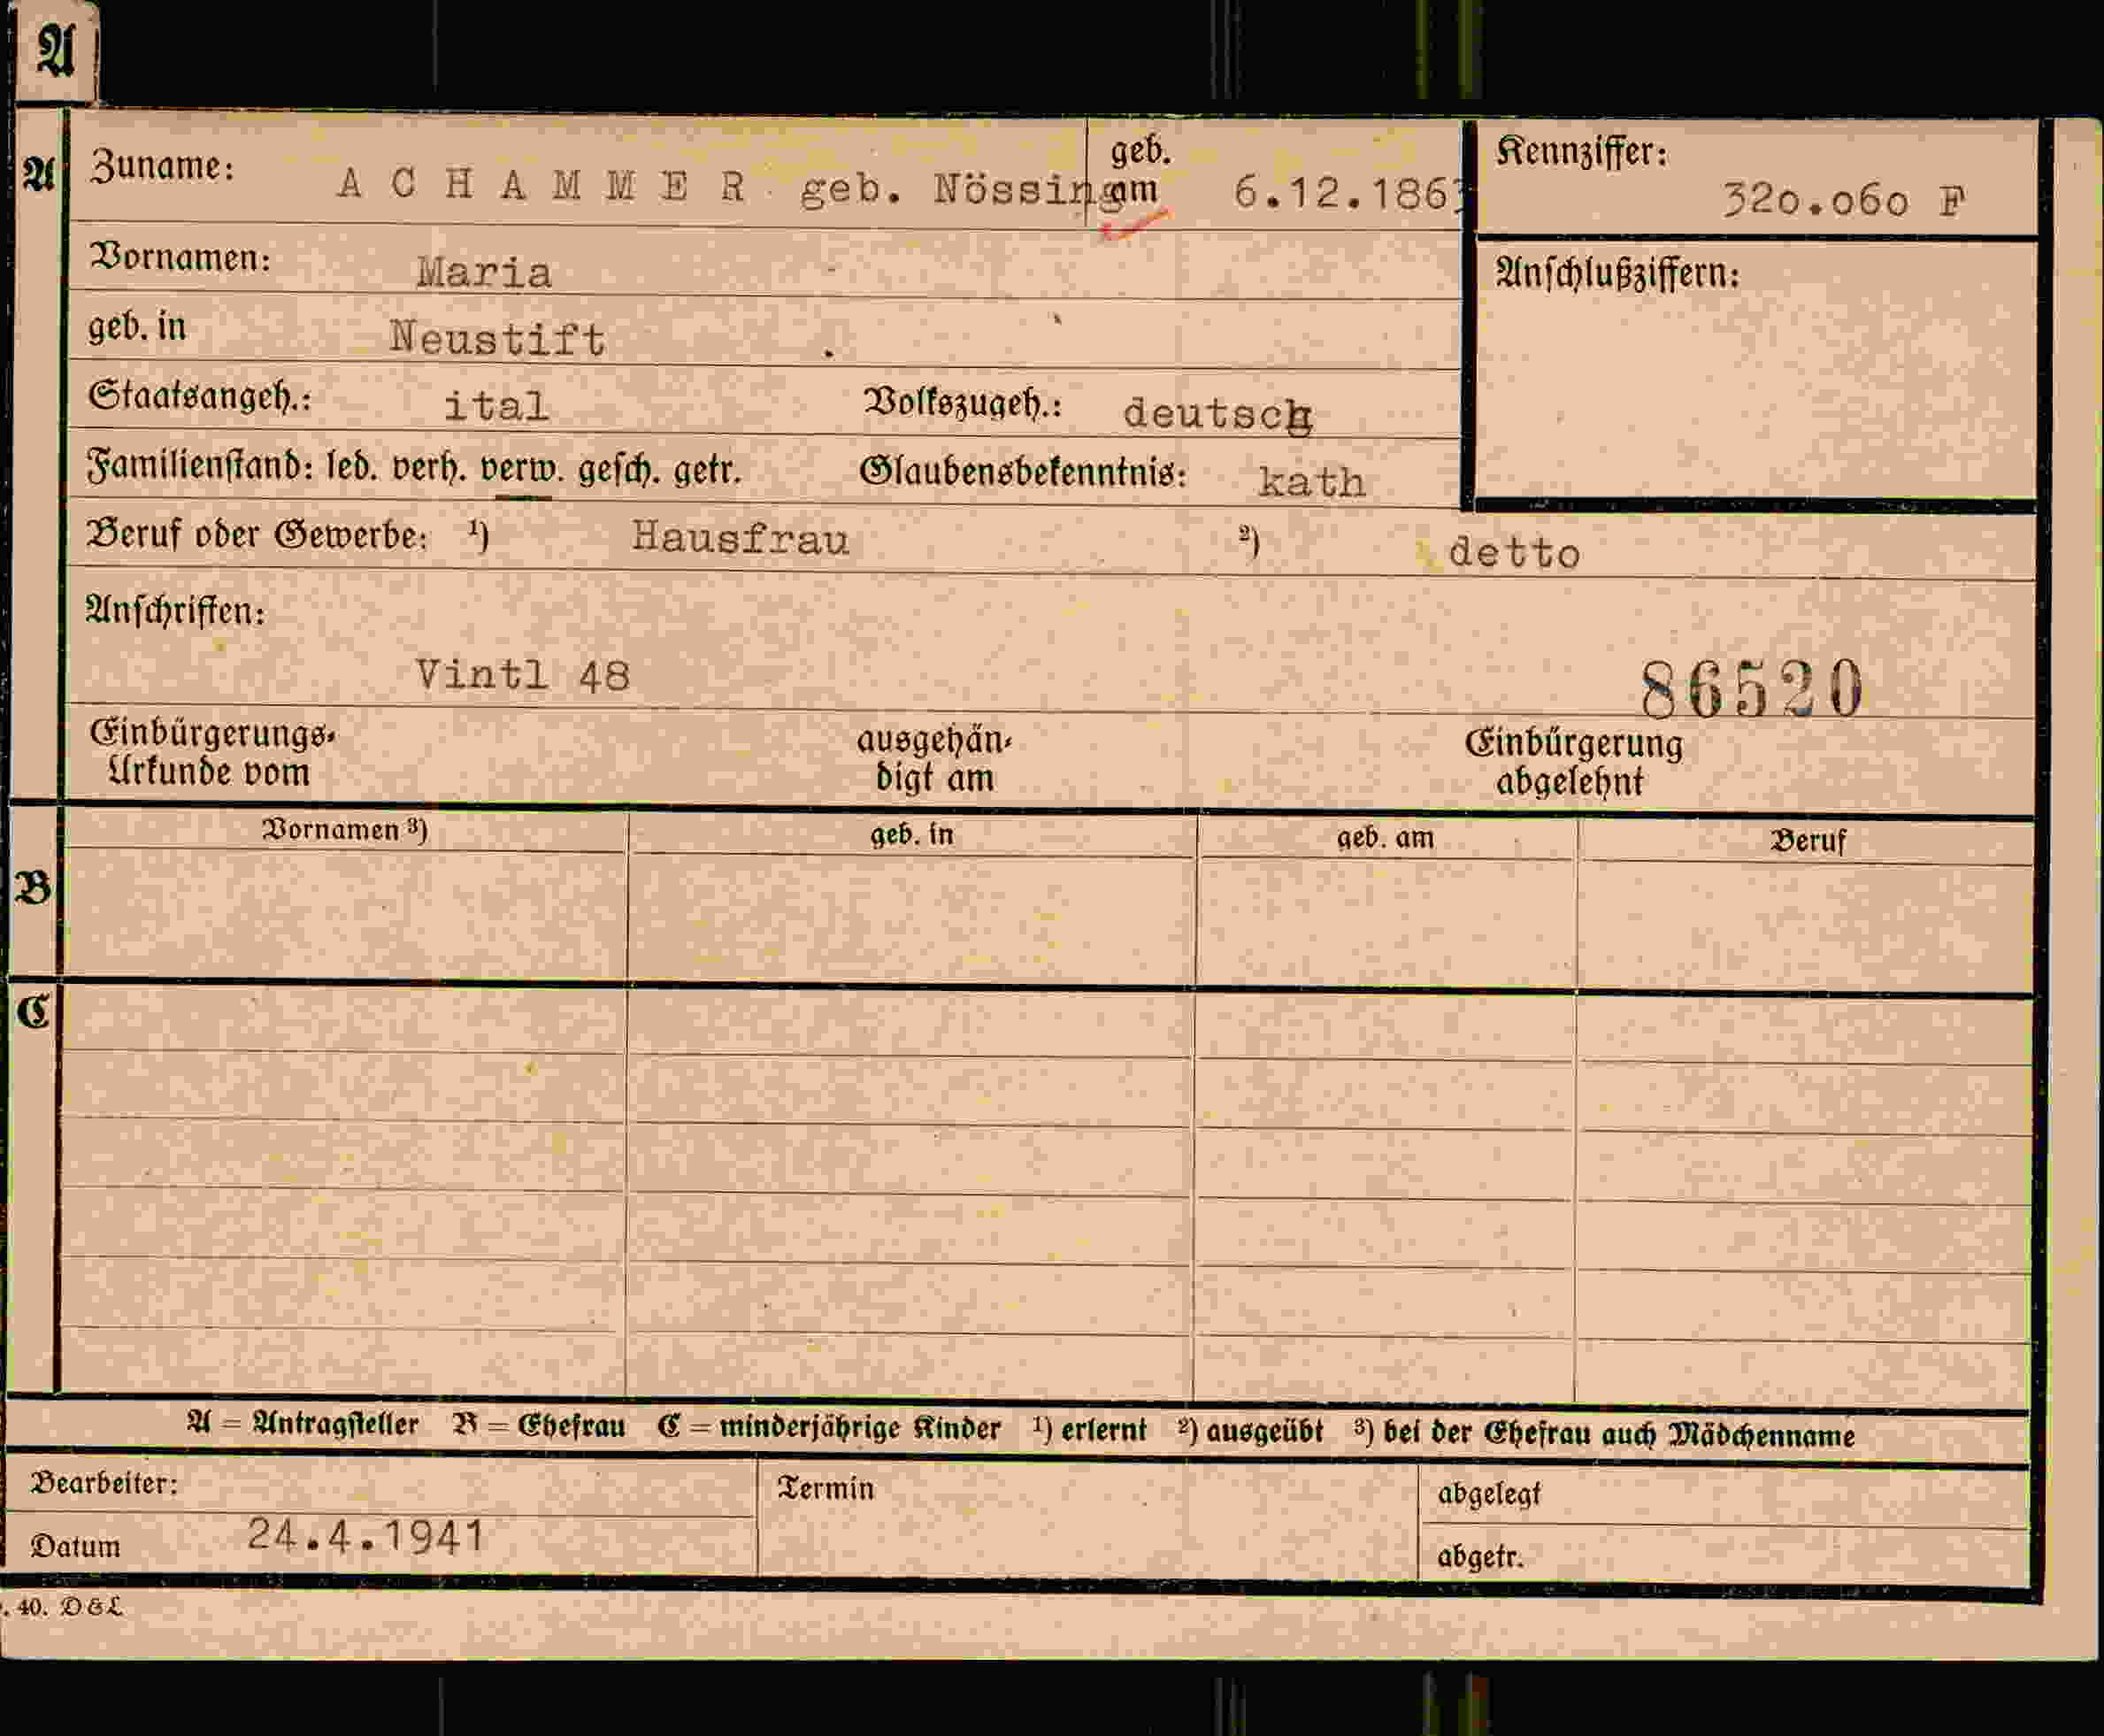 A
A Zuname: ACHAMMER geb. Nössing geb. am 6.12.1863 Kennziffer: 320.060 F
Vornamen: Maria Anschlußziffern:
geb. in Neustift
Staatsangeh.: ital Volkszugeh.: deutsch
Familienstand: led. verh. verw. gesch. getr. Glaubensbekenntnis: kath
Beruf oder Gewerbe: ¹) Hausfrau ²) detto
Anschriften:
Vintl 48 86520
Einbürgerungs-Urkunde vom ausgehändigt am Einbürgerung abgelehnt
Vornamen ³) geb. in geb. am Beruf
B
C
A = Antragsteller B = Ehefrau C = minderjährige Kinder ¹) erlernt ²) ausgeübt ³) bei der Ehefrau auch Mädchenname
Bearbeiter: Termin abgelegt
Datum 24.4.1941 abgetr.
. 40. D&L